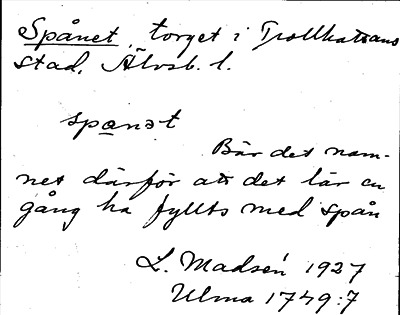 Spånet, torget i Trollhättans
stad, Älvsb. l.
spɑnət
Bär det nam-
net därför att det lär en
gång ha fyllts med spån
L. Madsén 1927
Ulma 1749:7